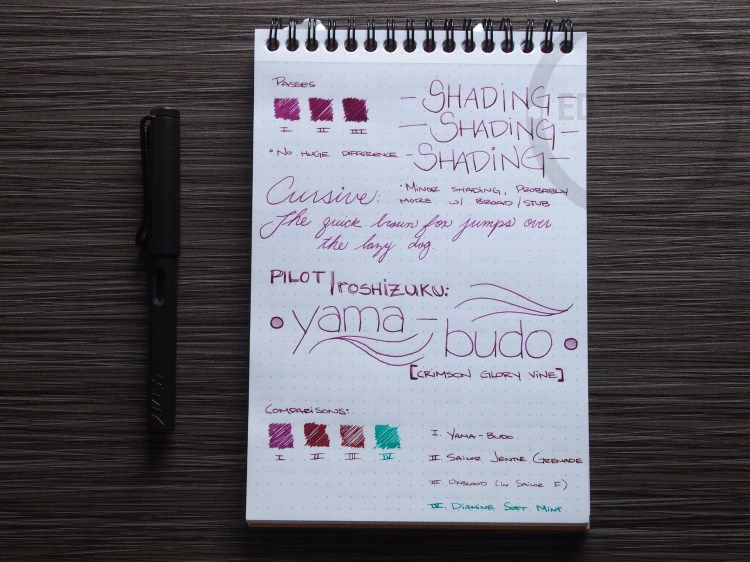 Passes
I II III
• No huge difference
- SHADING
- SHADING -
- SHADING -
Cursive:
• Minor shading, probably
more w/ broad/stub
The quick brown fox jumps over
the lazy dog.
PILOT/Iroshizuku:
yama-
budo
[CRIMSON GLORY VINE]
Comparisons:
I II III IV
I. Yama-Budo
II. Sailor Jentle Grenade
III. Oxblood (in Sailor F)
IV. Diamine Soft Mint